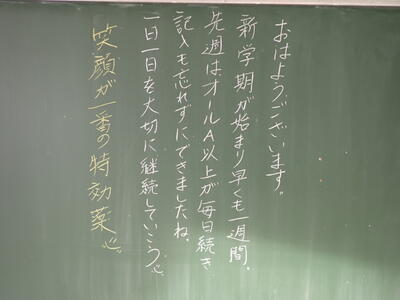 おはようございます。
新学期が始まり早くも一週間。
先週はオールA以上が毎日続き
記入も忘れずにできましたね。
一日一日を大切に継続していこう
笑顔が一番の特効薬